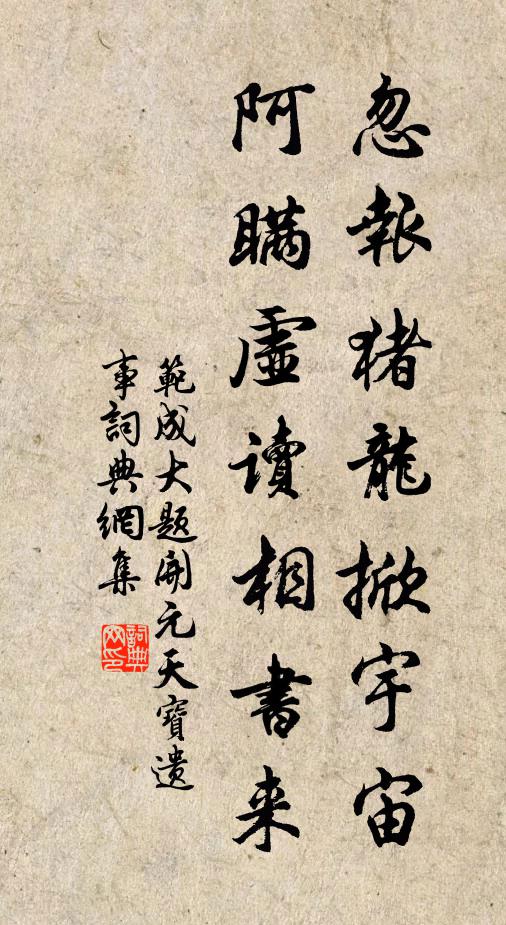 忽報猪龍掀宇宙
阿瞞虛讀相書来
範成大題開元天寶遺
事詞典網集
詞典网印